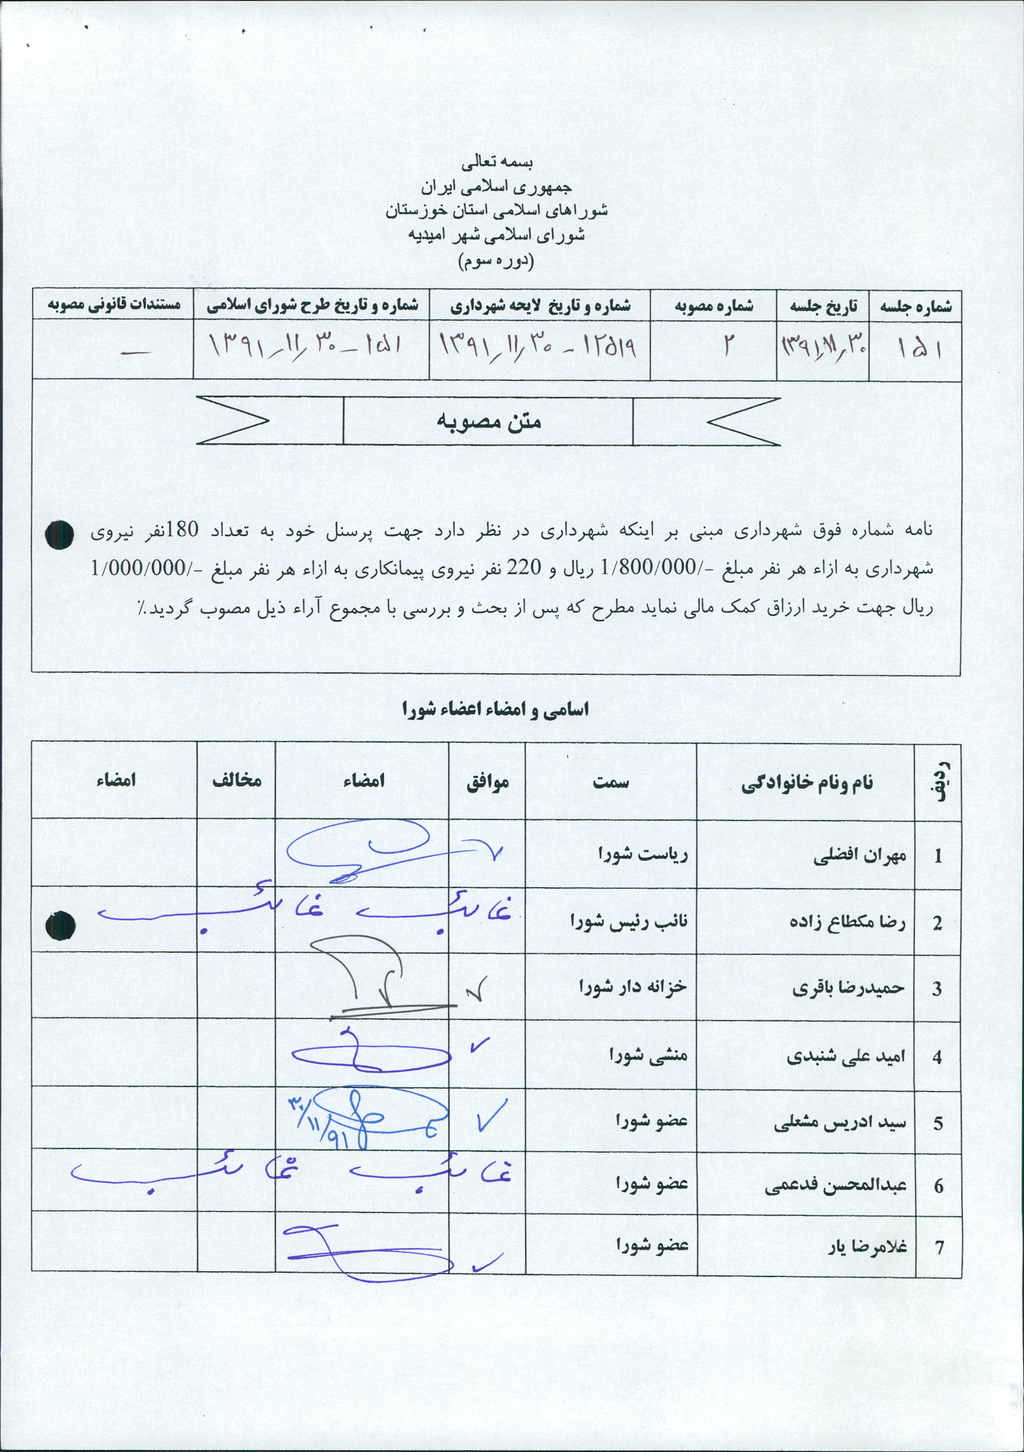 بسمه تعالی
جمهوری اسلامی ایران
شوراهای اسلامی استان خوزستان
شورای اسلامی شهر امیدیه
(دوره سوم)
شماره جلسه تاریخ جلسه شماره مصوبه شماره و تاریخ لایحه شهرداری شماره و تاریخ طرح شورای اسلامی مستندات قانونی مصوبه
۱۵۱ ۱۳۹۱٫۱۱٫۳۰ ۲ ۱۲۵۱۹ - ۱۳۹۱٫۱۱٫۳۰ ۱۵۱ - ۱۳۹۱٫۱۱٫۳۰ —
متن مصوبه
نامه شماره فوق شهرداری مبنی بر اینکه شهرداری در نظر دارد جهت پرسنل خود به تعداد 180نفر نیروی
شهرداری به ازاء هر نفر مبلغ -/1/800/000 ریال و 220 نفر نیروی پیمانکاری به ازاء هر نفر مبلغ -/1/000/000
ریال جهت خرید ارزاق کمک مالی نماید مطرح که پس از بحث و بررسی با مجموع آراء ذیل مصوب گردید.٪
اسامی و امضاء اعضاء شورا
ردیف نام ونام خانوادگی سمت موافق امضاء مخالف امضاء
1 مهران افضلی ریاست شورا ✓
2 رضا مکطاع زاده نائب رئیس شورا غائب غائب
3 حمیدرضا باقری خزانه دار شورا ✓
4 امید علی شنبدی منشی شورا ✓
5 سید ادریس مشعلی عضو شورا ✓ ۹۱/۱۱/۳۰
6 عبدالمحسن فدعمی عضو شورا غائب غائب
7 غلامرضا یار عضو شورا ✓